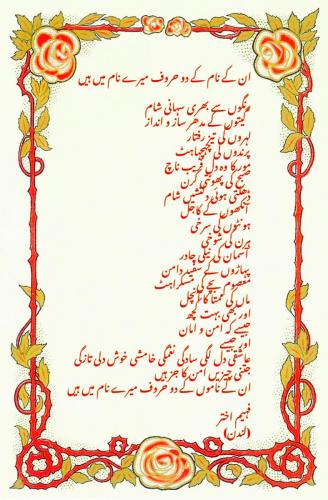 ان کے نام کے دو حروف میرے نام میں ہیں
رنگوں سے بھری سہانی شام
گیتوں کے مدھر ساز و انداز
لہروں کی تیز رفتار
پرندوں کی چہچہاہٹ
مور کا وہ دل فریب ناچ
صبح کی پھوٹتی کرن
ڈھلتی ہوئی دلکشیں شام
آنکھوں کے کاجل
ہونٹوں کی سرخی
ہرن کی شوخی
آسمان کی نیلی چادر
پہاڑوں کے سفید دامن
معصوم بچے کی مسکراہٹ
ماں کی ممتا کا آنچل
اور بھی بہت کچھ
جیسے کہ امن و امان
اور جیسے
عاشقی دل لگی سادگی نغمگی خامشی خوش دلی تازگی
جتنی چیزیں امن کا جز ہیں
ان کے ناموں کے دو حروف میرے نام میں ہیں
فہیم اختر
(لندن)